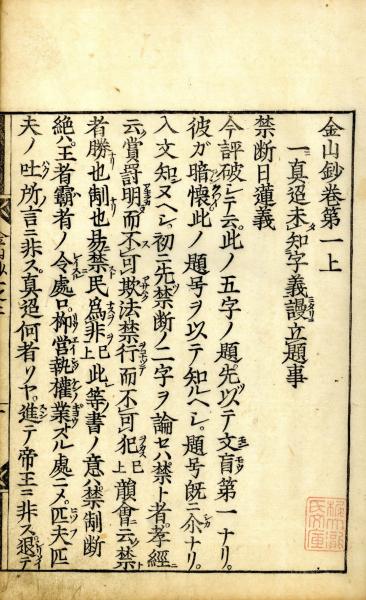 金山鈔卷第一上
一真迢未知字義謾立題事
禁断日蓮義
今評破シテ云此ノ五字ノ題先以テ文盲第一ナリ。
彼ガ暗懐此ノ題号ヲ以テ知ルヘシ。題号既ニ尒ナリ。
入文知ヌヘシ。初ニ先禁断ノ二字ヲ論セハ禁ト者孝經ニ
云賞罰明而不可欺法禁行而不可犯已上韻會ニ云禁
者勝也制也易禁民爲非已上此等書ノ意ハ禁制断
絶ハ王者霸者ノ令處ロ柳営執權業スル處ニメ。匹夫匹
夫ノ吐所言ニ非ス。真迢何者リヤ。進テ帝王ニ非ス退テ